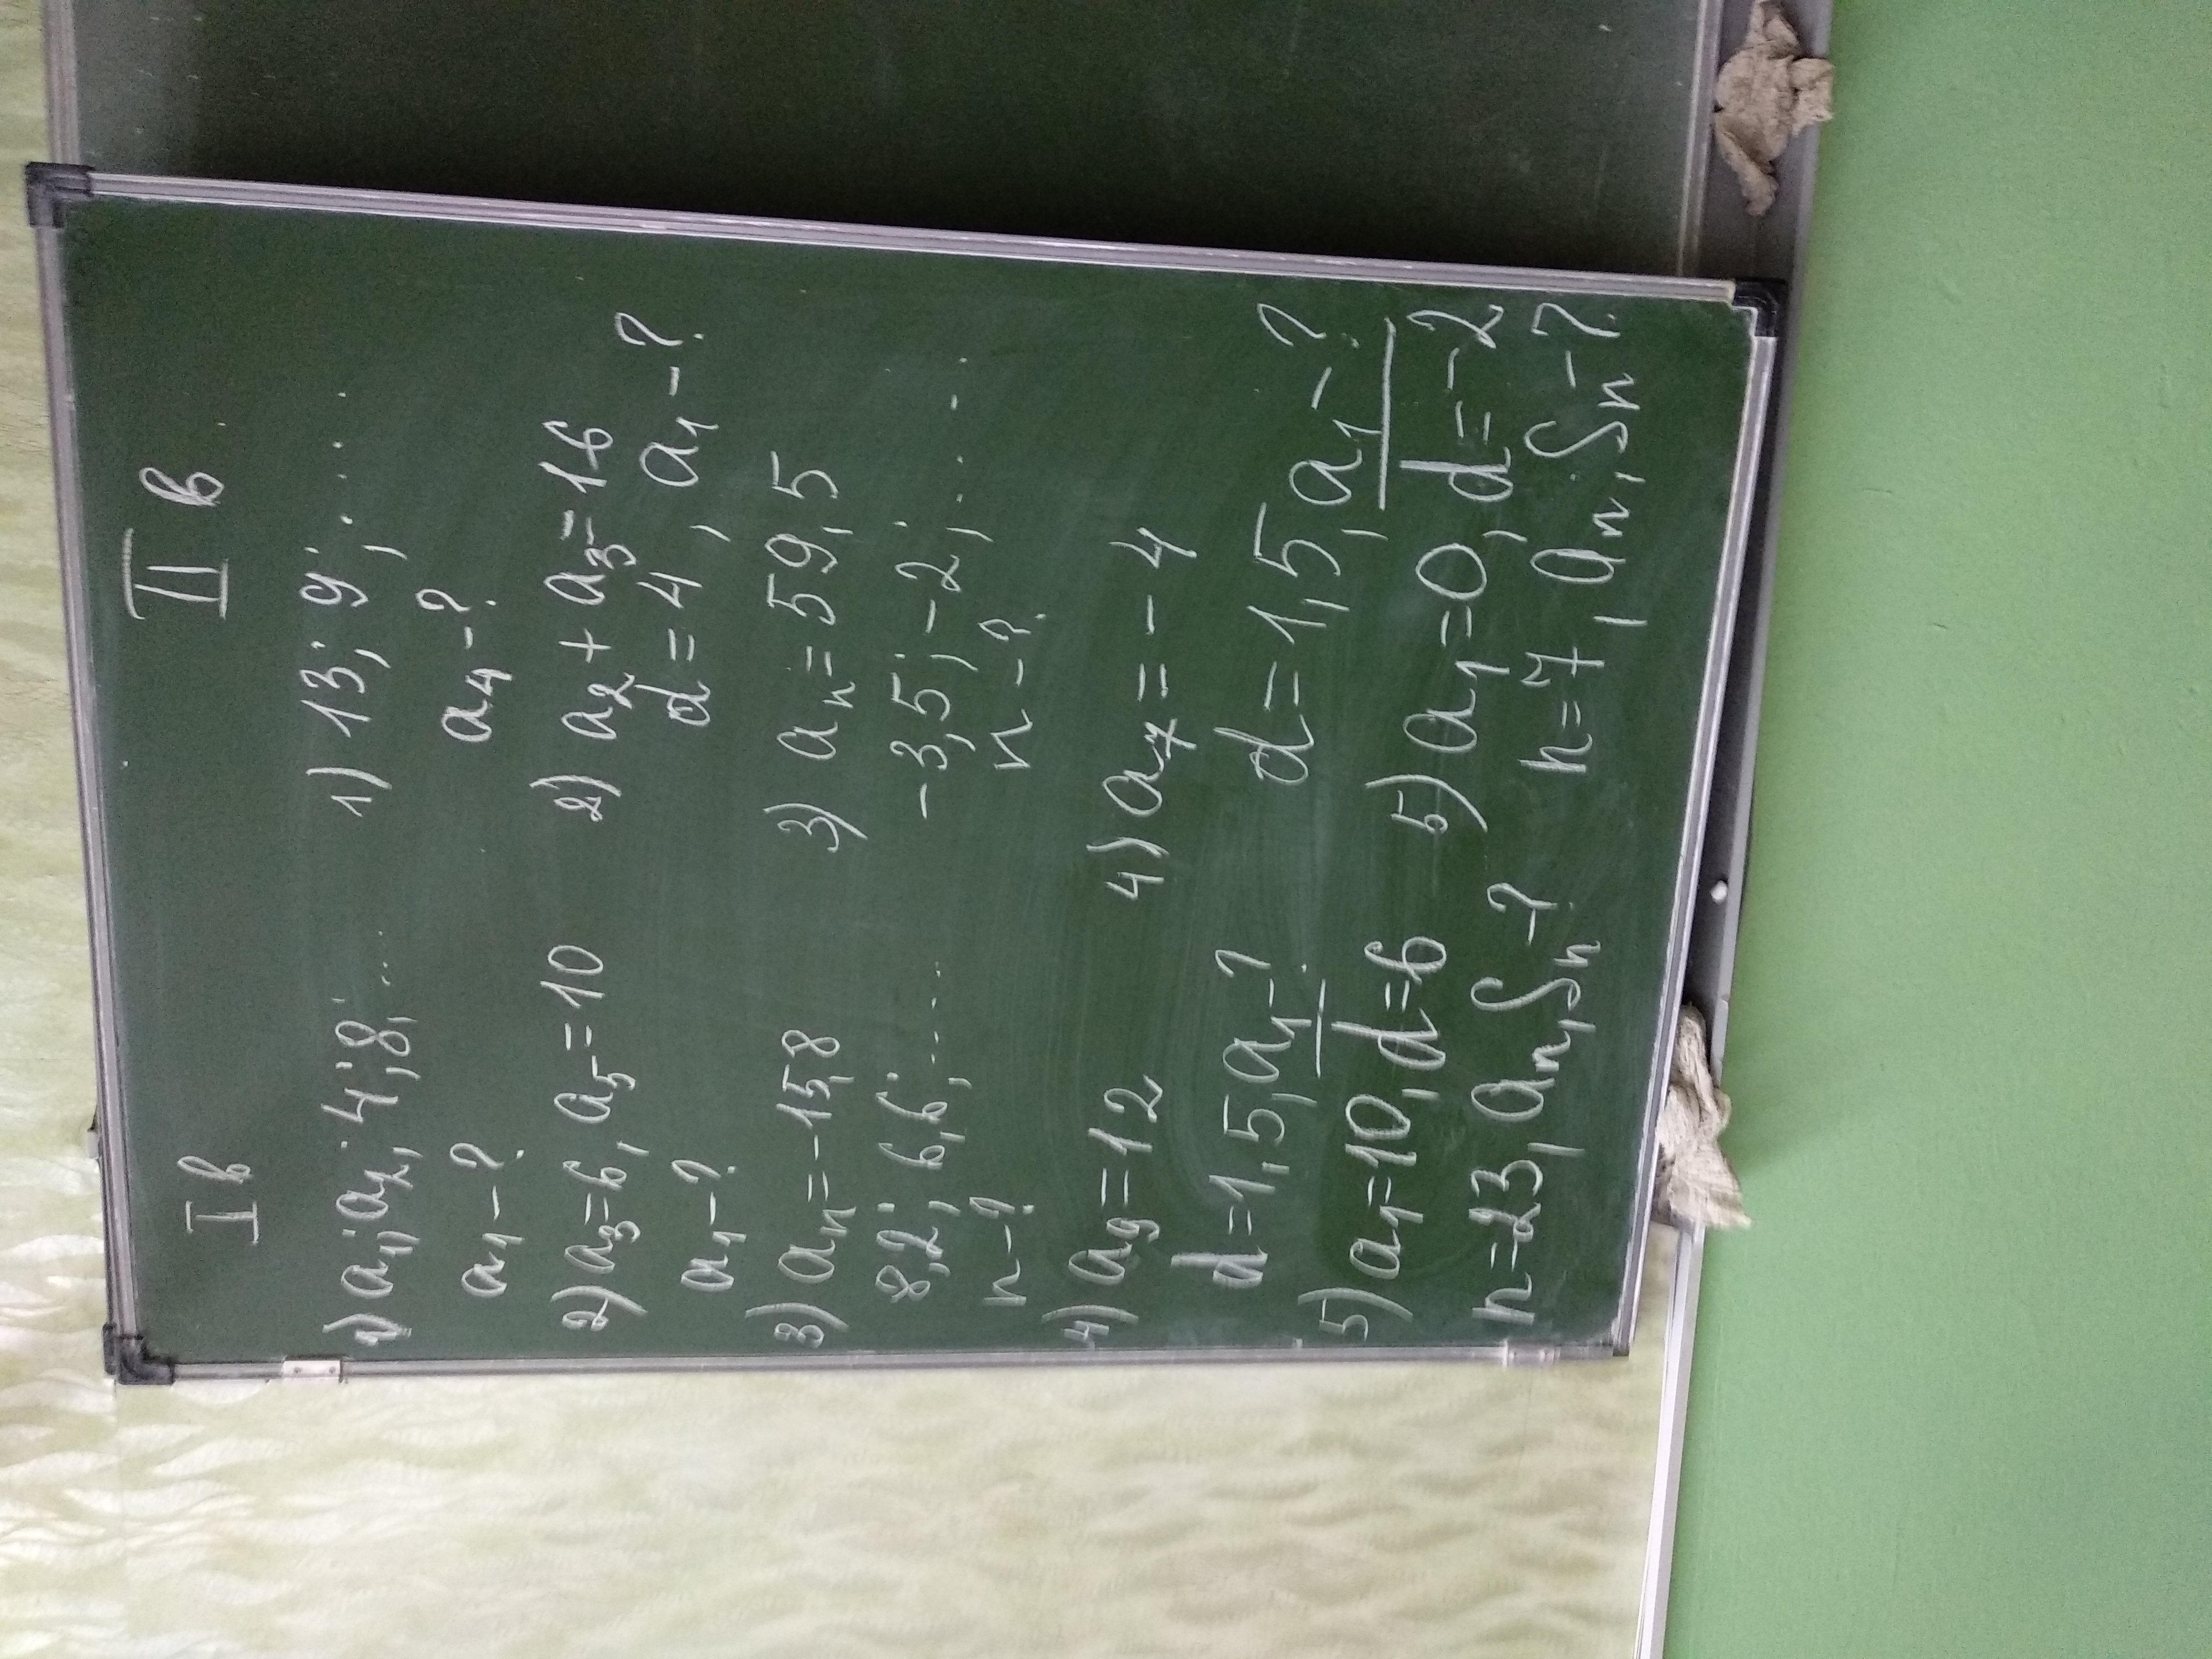 I в
1) a₁; a₂; 4; 8; ...
a₁ - ?
2) a₃ = 6, a₅ = 10
a₁ - ?
3) aₙ = -15,8
8,2; 6,6; ....
n - ?
4) a₉ = 12
d = 1,5, a₁ - ?
5) a₁ = 10, d = 6
n = 23, aₙ, Sₙ - ?
II в
1) 13; 9; .....
a₄ - ?
2) a₂ + a₃ = 16
d = 4, a₁ - ?
3) aₙ = 59,5
-3,5; -2; ....
n - ?
4) a₇ = -4
d = 1,5, a₁ - ?
5) a₁ = 0, d = -2
n = 7, aₙ, Sₙ - ?